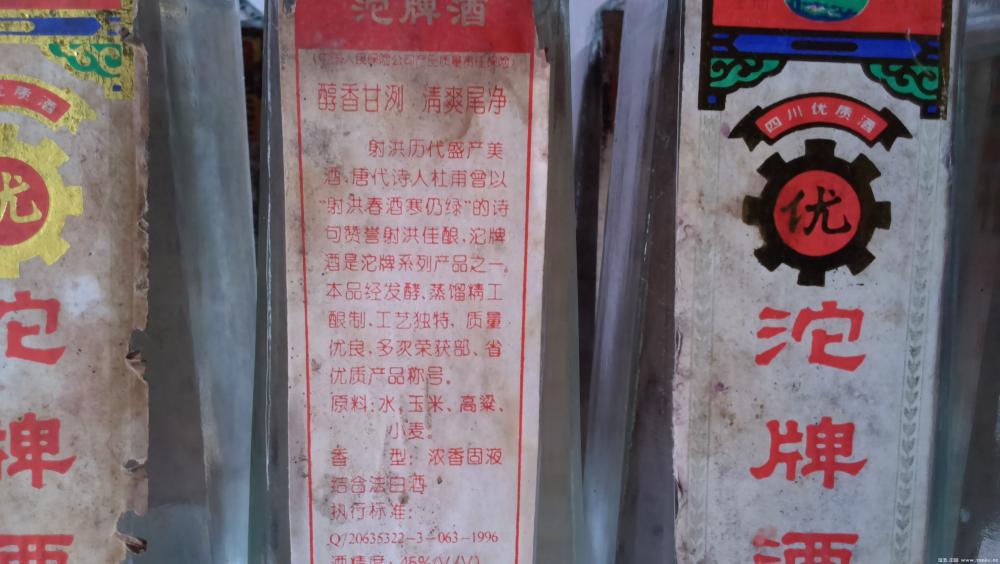 优
沱
牌
酒
沱牌酒
醇香甘洌 清爽尾净
射洪历代盛产美
酒,唐代诗人杜甫曾以
“射洪春酒寒仍绿”的诗
句赞誉射洪佳酿,沱牌
酒是沱牌系列产品之一。
本品经发酵,蒸馏精工
酿制,工艺独特、质量
优良,多次荣获部、省
优质产品称号。
原料:水,玉米、高粱、
小麦。
香 型:浓香固液
结合法白酒
执行标准:
Q/20635322-3-063-1996
酒精度:45%(V/V)
四川优质酒
优
沱
牌
酒